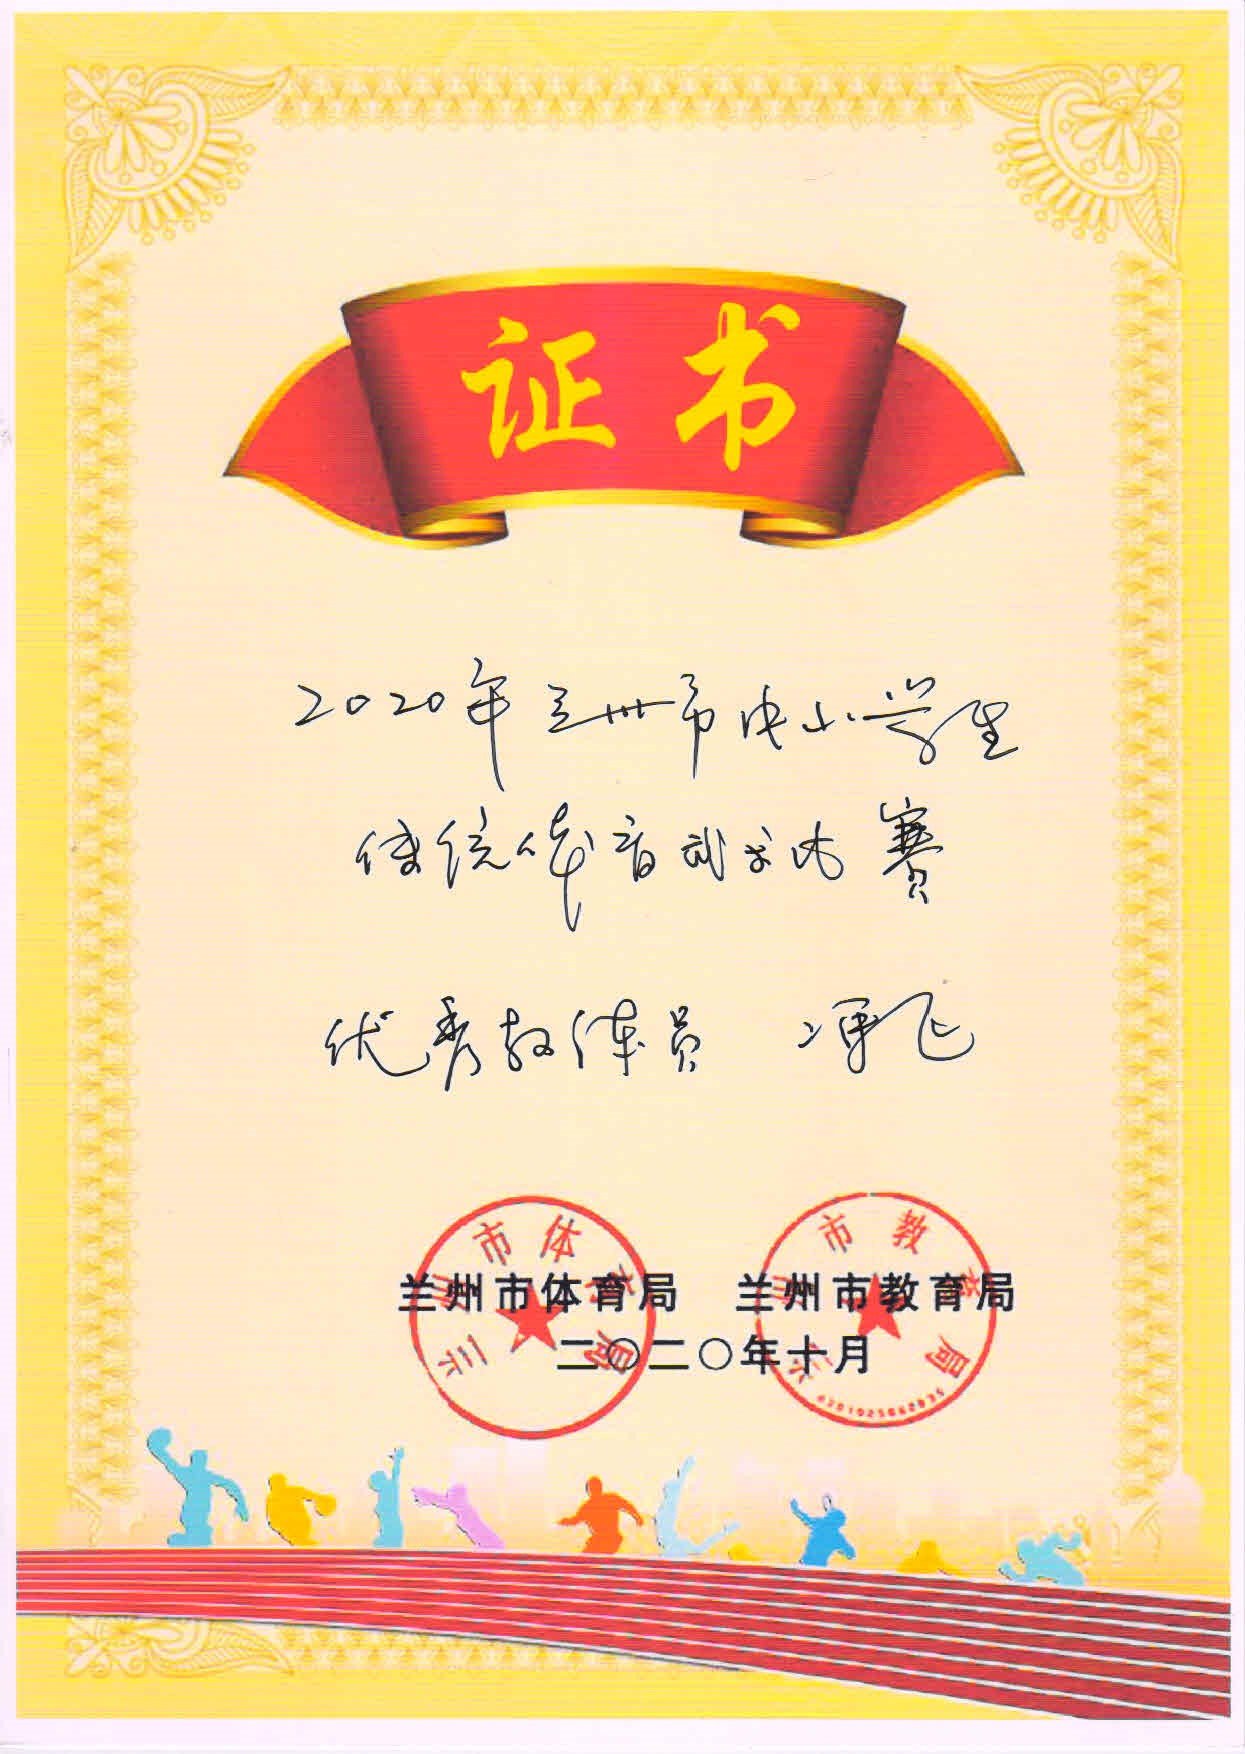 证书
2020年兰州市中小学生
传统体育武术比赛
优秀教练员
兰州市体育局 兰州市教育局
二〇二〇年十月
兰州市体育局
兰州市教育局